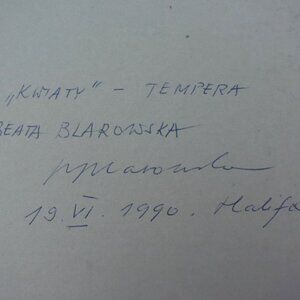 „KWIATY" - TEMPERA
BEATA BLAROWSKA
19.VI.1990. Halifa